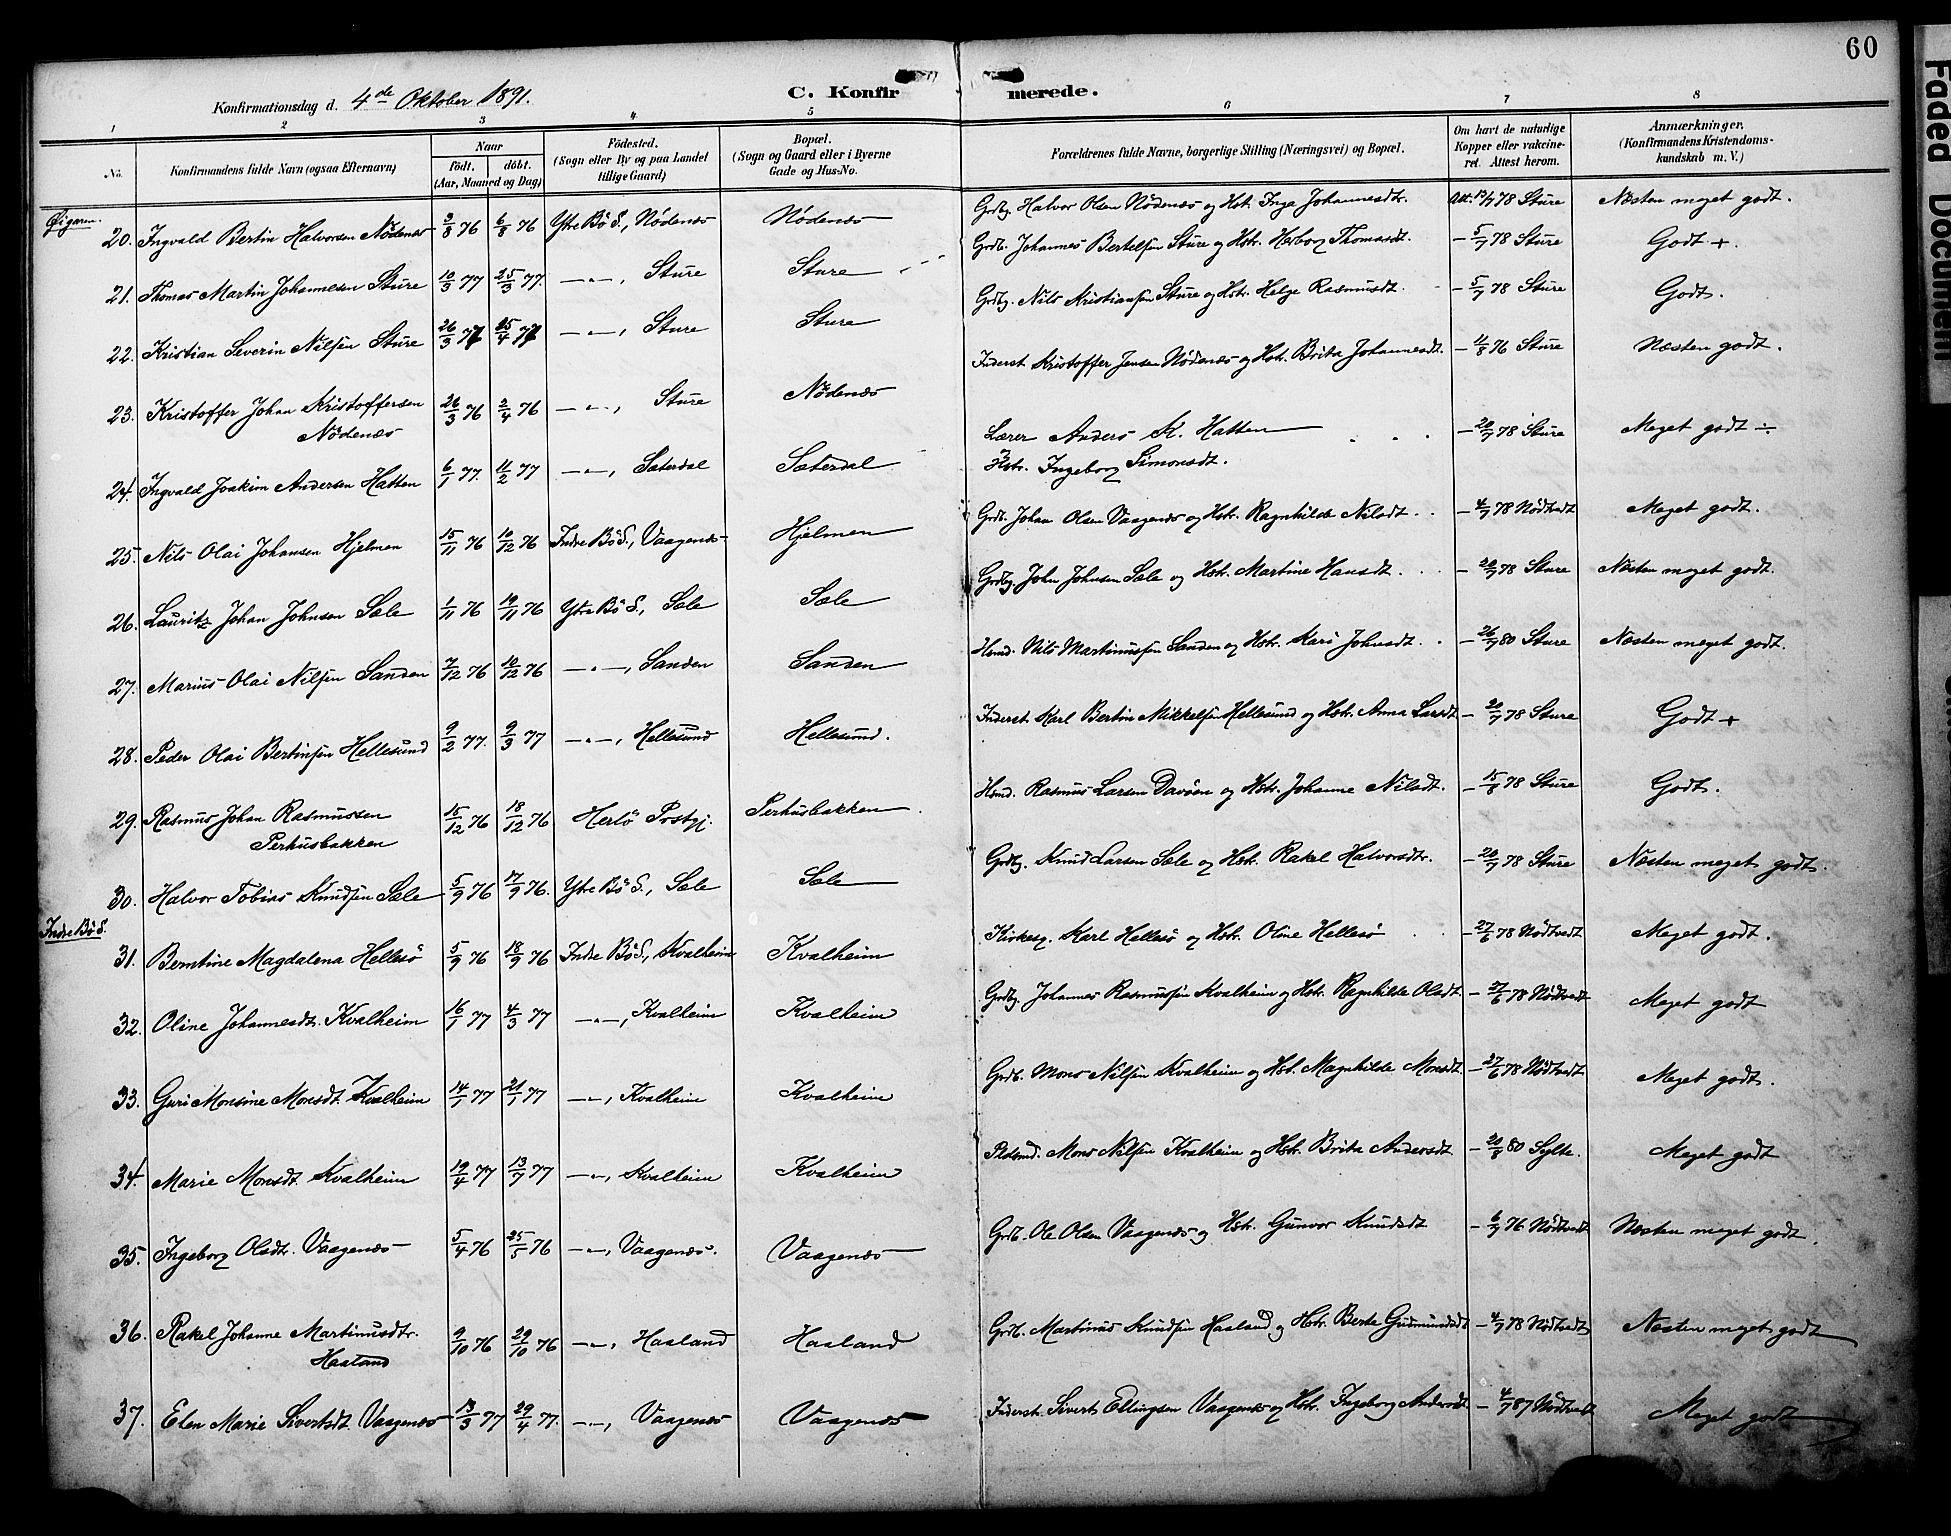 60
Konfirmationsdag d. 4de Oktober 1891.
C. Konfirmerede.
1 2 3 4 5 6 7 8
No. Konfirmandens fulde Navn (ogsaa Efternavn) Naar født. døbt. (Aar, Maaned og Dag) Födested. (Sogn eller By og paa Landet tillige Gaard) Bopæl. (Sogn og Gaard eller i Byerne Gade og Hus-No. Forældrenes fulde Navne, borgerlige Stilling (Næringsvei) og Bopæl. Om havt de naturlige Kopper eller vakcineret. Attest herom. Anmærkninger. (Konfirmandens Kristendomskundskab m. V.)
Øigaren.
20. Ingvald Bertin Halvorsen Nödenæs 3/8 76 6/8 76 Ytre Bö S., Nödenæs Nödenæs Grdbg. Halvor Olsen Nödenæs og Hstr. Inga Johannesdtr. 78 Sture Næsten meget godt.
21. Thomas Martin Johannesen Sture 10/3 77 25/3 77. —"—, Sture Sture Grdb. Johannes Bertelsen Sture og Hstr. Herborg Thomasdt. — 5/7 78 Sture Godt +.
22. Kristian Severin Nilsen Sture 26/3 77 25/4 77 —"—, Sture Sture Grdbg. Nils Kristiansen Sture og Hstr. Helge Rasmusdt. — 5/7 78 Sture Godt.
23. Kristoffer Johan Kristoffersen Nödenæs 26/3 76 2/4 76 —"—, Sture Nödenæs Inderst Kristoffer Jensen Nödenæs og Hstr. Brita Johannesdt. — 11/8 76 Sture Næsten godt.
24. Ingvald Joakim Andersen Hatten 6/1 77. 11/2 77 —"—, Sæterdal Sæterdal Lærer Anders K. Hatten og Hstr. Ingeborg Simonsdt. — 20/7 78 Sture Meget godt ÷
25. Nils Olai Johansen Hjelmen 15/11 76 10/12 76 Indre Bö S., Vaagenæs Hjelmen Grdb. Johan Olsen Vaagenæs og Hstr. Ragnhilde Nilsdt. — 4/7 78 Nödtvedt Meget godt.
26. Lauritz Johan Johnsen Sæle 1/11 76 19/11 76 Ytre Bö S., Sæle Sæle Grdbg. John Johnsen Sæle og Hstr. Martine Hansdt. — 20/7 78 Sture Næsten meget godt.
27. Marius Olai Nilsen Sanden 7/12 76 10/12 76 —"—, Sanden Sanden Hsmd. Nils Martinussen Sanden og Hstr. Kari Johnsdt. — 26/7 80 Sture Næsten meget godt.
28. Peder Olai Bertinsen Hellesund 9/2 77. 9/3 77 —"—, Hellesund Hellesund. Inderst Karl Bertin Mikkelsen Hellesund og Hstr. Anna Larsdt — 20/7 78 Sture Godt +
29. Rasmus Johan Rasmussen Perhusbakken 15/12 76 18/12 76 Herlö Prstgj. Perhusbakken. Hsmd. Rasmus Larsen Davöen og Hstr. Johanne Nilsdt. 78 Sture Godt.
30. Halvor Tobias Knudsen Sæle 5/9 76 17/9 76. Ytre Bö S., Sæle Sæle Grdbg. Knud Larsen Sæle og Hstr. Rakel Halvorsdtr. — 20/7 78 Sture Næsten meget godt.
Indre Bö S.
31. Berntine Magdalena Hellesö 5/9 76 18/9 76 Indre Bö S., Kvalheim Kvalheim Kirkesg. Karl Hellesö og Hstr. Oline Hellesö — 27/6 78 Nödtvedt Meget godt.
32. Oline Johannesdt. Kvalheim 16/1 77 4/3 77 —"—, Kvalheim Kvalheim Grdbg. Johannes Rasmussen Kvalheim og Hstr. Ragnhilde Olsdt — 27/6 78 Nödtvedt Meget godt
33. Guri Monsine Monsdt. Kvalheim 14/1 77 21/1 77 —"—, Kvalheim Kvalheim Grdb. Mons Nilsen Kvalheim og Hstr. Magnhilde Monsdt — 27/6 78 Nödtvedt Meget godt.
34. Marie Monsdt. Kvalheim 19/4 77 13/7 77 —"—, Kvalheim Kvalheim Mons Nilsen Kvalheim og Hstr. Brita Andersdt 80 Sylte. Meget godt
35. Ingeborg Olsdtr. Vaagenæs 5/4 76 25/5 76 —"—, Vaagenæs. Vaagenæs Grdb. Ole Olsen Vaagenæs og Hstr. Gunvor Knudsdt — 6/7 76 Nödtvedt Næsten meget godt.
36. Rakel Johanne Martinusdtr. Haaland 9/10 76 29/10 76 —"—, Haaland Haaland Grdb. Martinus Knudsen Haaland og Hstr. Berta Gudmundsdt — 4/7 78 Nödtvedt Næsten meget godt
37. Elen Marie Sivertsdt. Vaagenæs 13/3 77 29/4 77. —"—, Vaagenæs Vaagenæs Inderst. Sivert Ellingsen Vaagenæs og Hstr. Ingeborg Andersdt — 4/7 87 Nödtvedt Meget godt
Faded Document